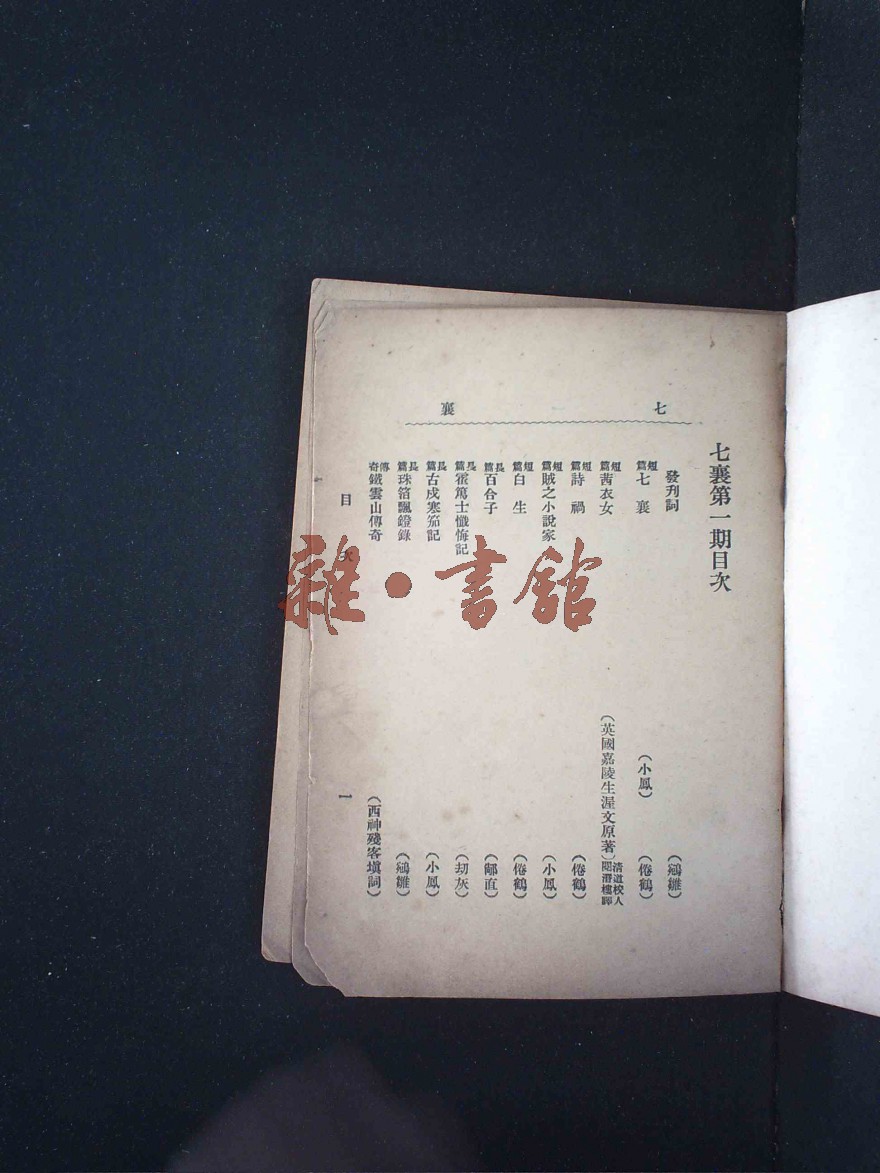 七襄
七襄第一期目次
發刊詞 (鵷雛)
短篇 七襄 (小鳳) (倦鶴)
短篇 茜衣女 (英國嘉陵生渥文原著)
短篇 詩禍 (倦鶴)
短篇 賊之小說家 (小鳳)
短篇 白生 (倦鶴)
長篇 百合子 (鄰直)
長篇 霍萬士懺悔記 (劫灰)
長篇 古戍寒笳記 (小鳳)
長篇 珠箔飄鐙錄 (鵷雛)
傳奇 鐵雲山傳奇 (西神殘客塡詞)
目次
一
雜·書館